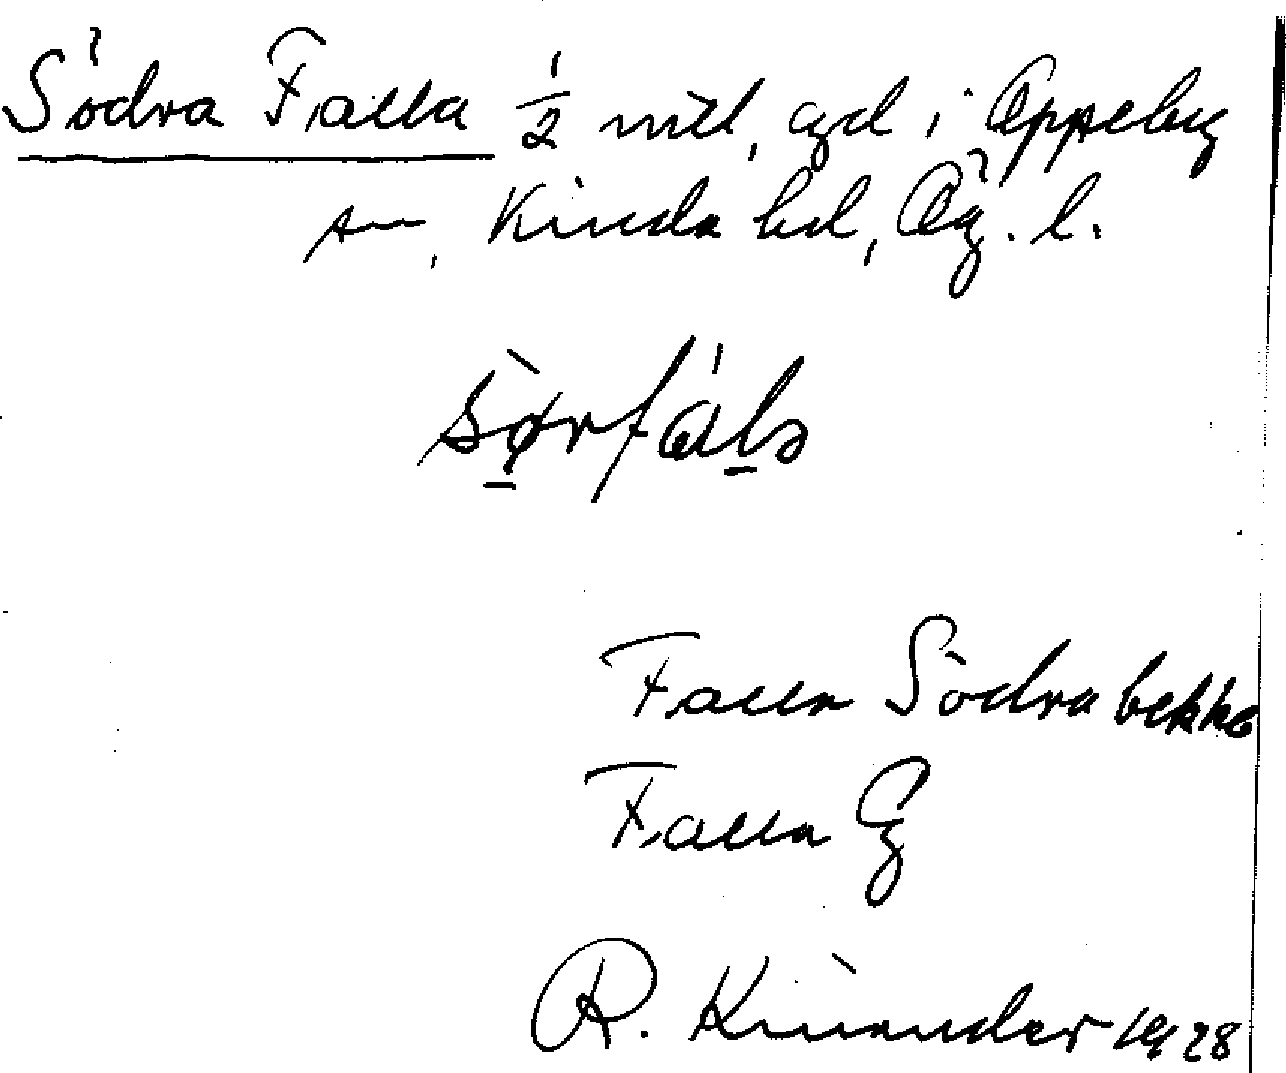 Södra Falla 1/2 mtl, gd i Oppeby
sn, Kinda hd, Ög. l.
Falla Södra bekke
Falla G
R. Kinander 1928